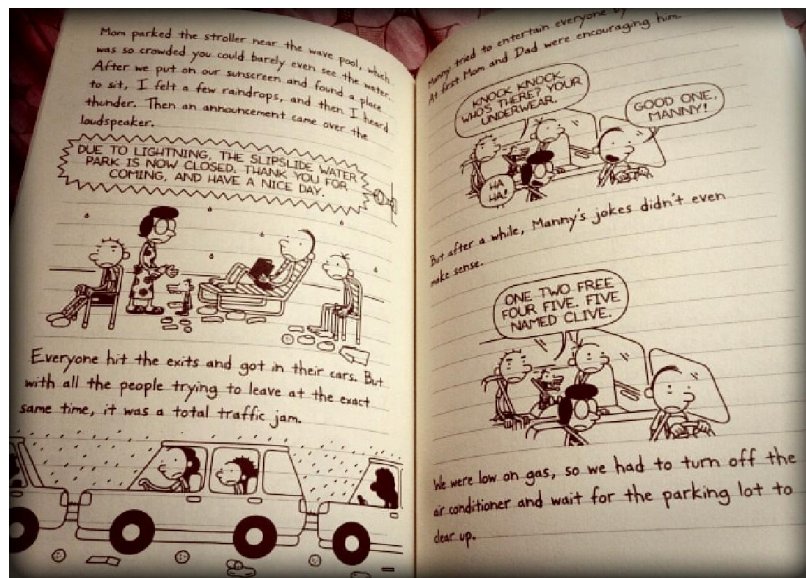 Mom parked the stroller near the wave pool, which
was so crowded you could barely even see the water.
After we put on our sunscreen and found a place
to sit, I felt a few raindrops, and then I heard
thunder. Then an announcement came over the
loudspeaker.
DUE TO LIGHTNING, THE SLIPSLIDE WATER
PARK IS NOW CLOSED. THANK YOU FOR
COMING, AND HAVE A NICE DAY.
Everyone hit the exits and got in their cars. But
with all the people trying to leave at the exact
same time, it was a total traffic jam.
Manny tried to entertain everyone by
At first Mom and Dad were encouraging him.
KNOCK KNOCK.
WHO'S THERE? YOUR
UNDERWEAR.
GOOD ONE,
MANNY!
HA
HA!
But after a while, Manny's jokes didn't even
make sense.
ONE TWO FREE
FOUR FIVE. FIVE
NAMED CLIVE.
We were low on gas, so we had to turn off the
air conditioner and wait for the parking lot to
clear up.